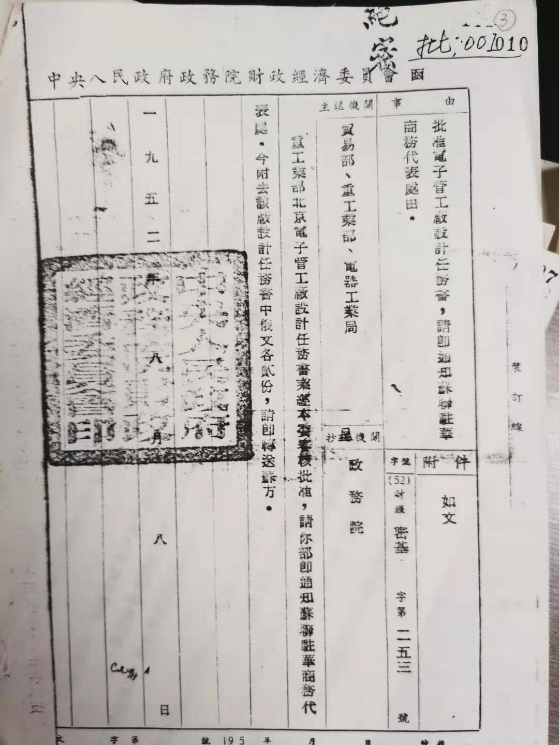 絕密
③
批:001010
中央人民政府政務院財政經濟委員會 函
事由
批准電子管工廠設計任務書,請即通知蘇聯駐華
商務代表處由。
附件
如文
主送機關
貿易部、重工業部、電器工業局
抄呈機關
政務院
字號
(52)財經密基字第二五三號
重工業部北京電子管工廠設計任務書業經本委審核批准,請你部即通知蘇聯駐華商務代
表處。今附去該廠設計任務書中俄文各貳份,請即轉送蘇方。
一九五二年八月八日
裝訂線
字第 號 195 年 月 日